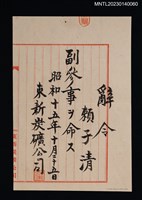 MNTL20230140060
辭令
賴子清
副參事ヲ命ス
昭和十五年十月三十五日
東新炭礦公司